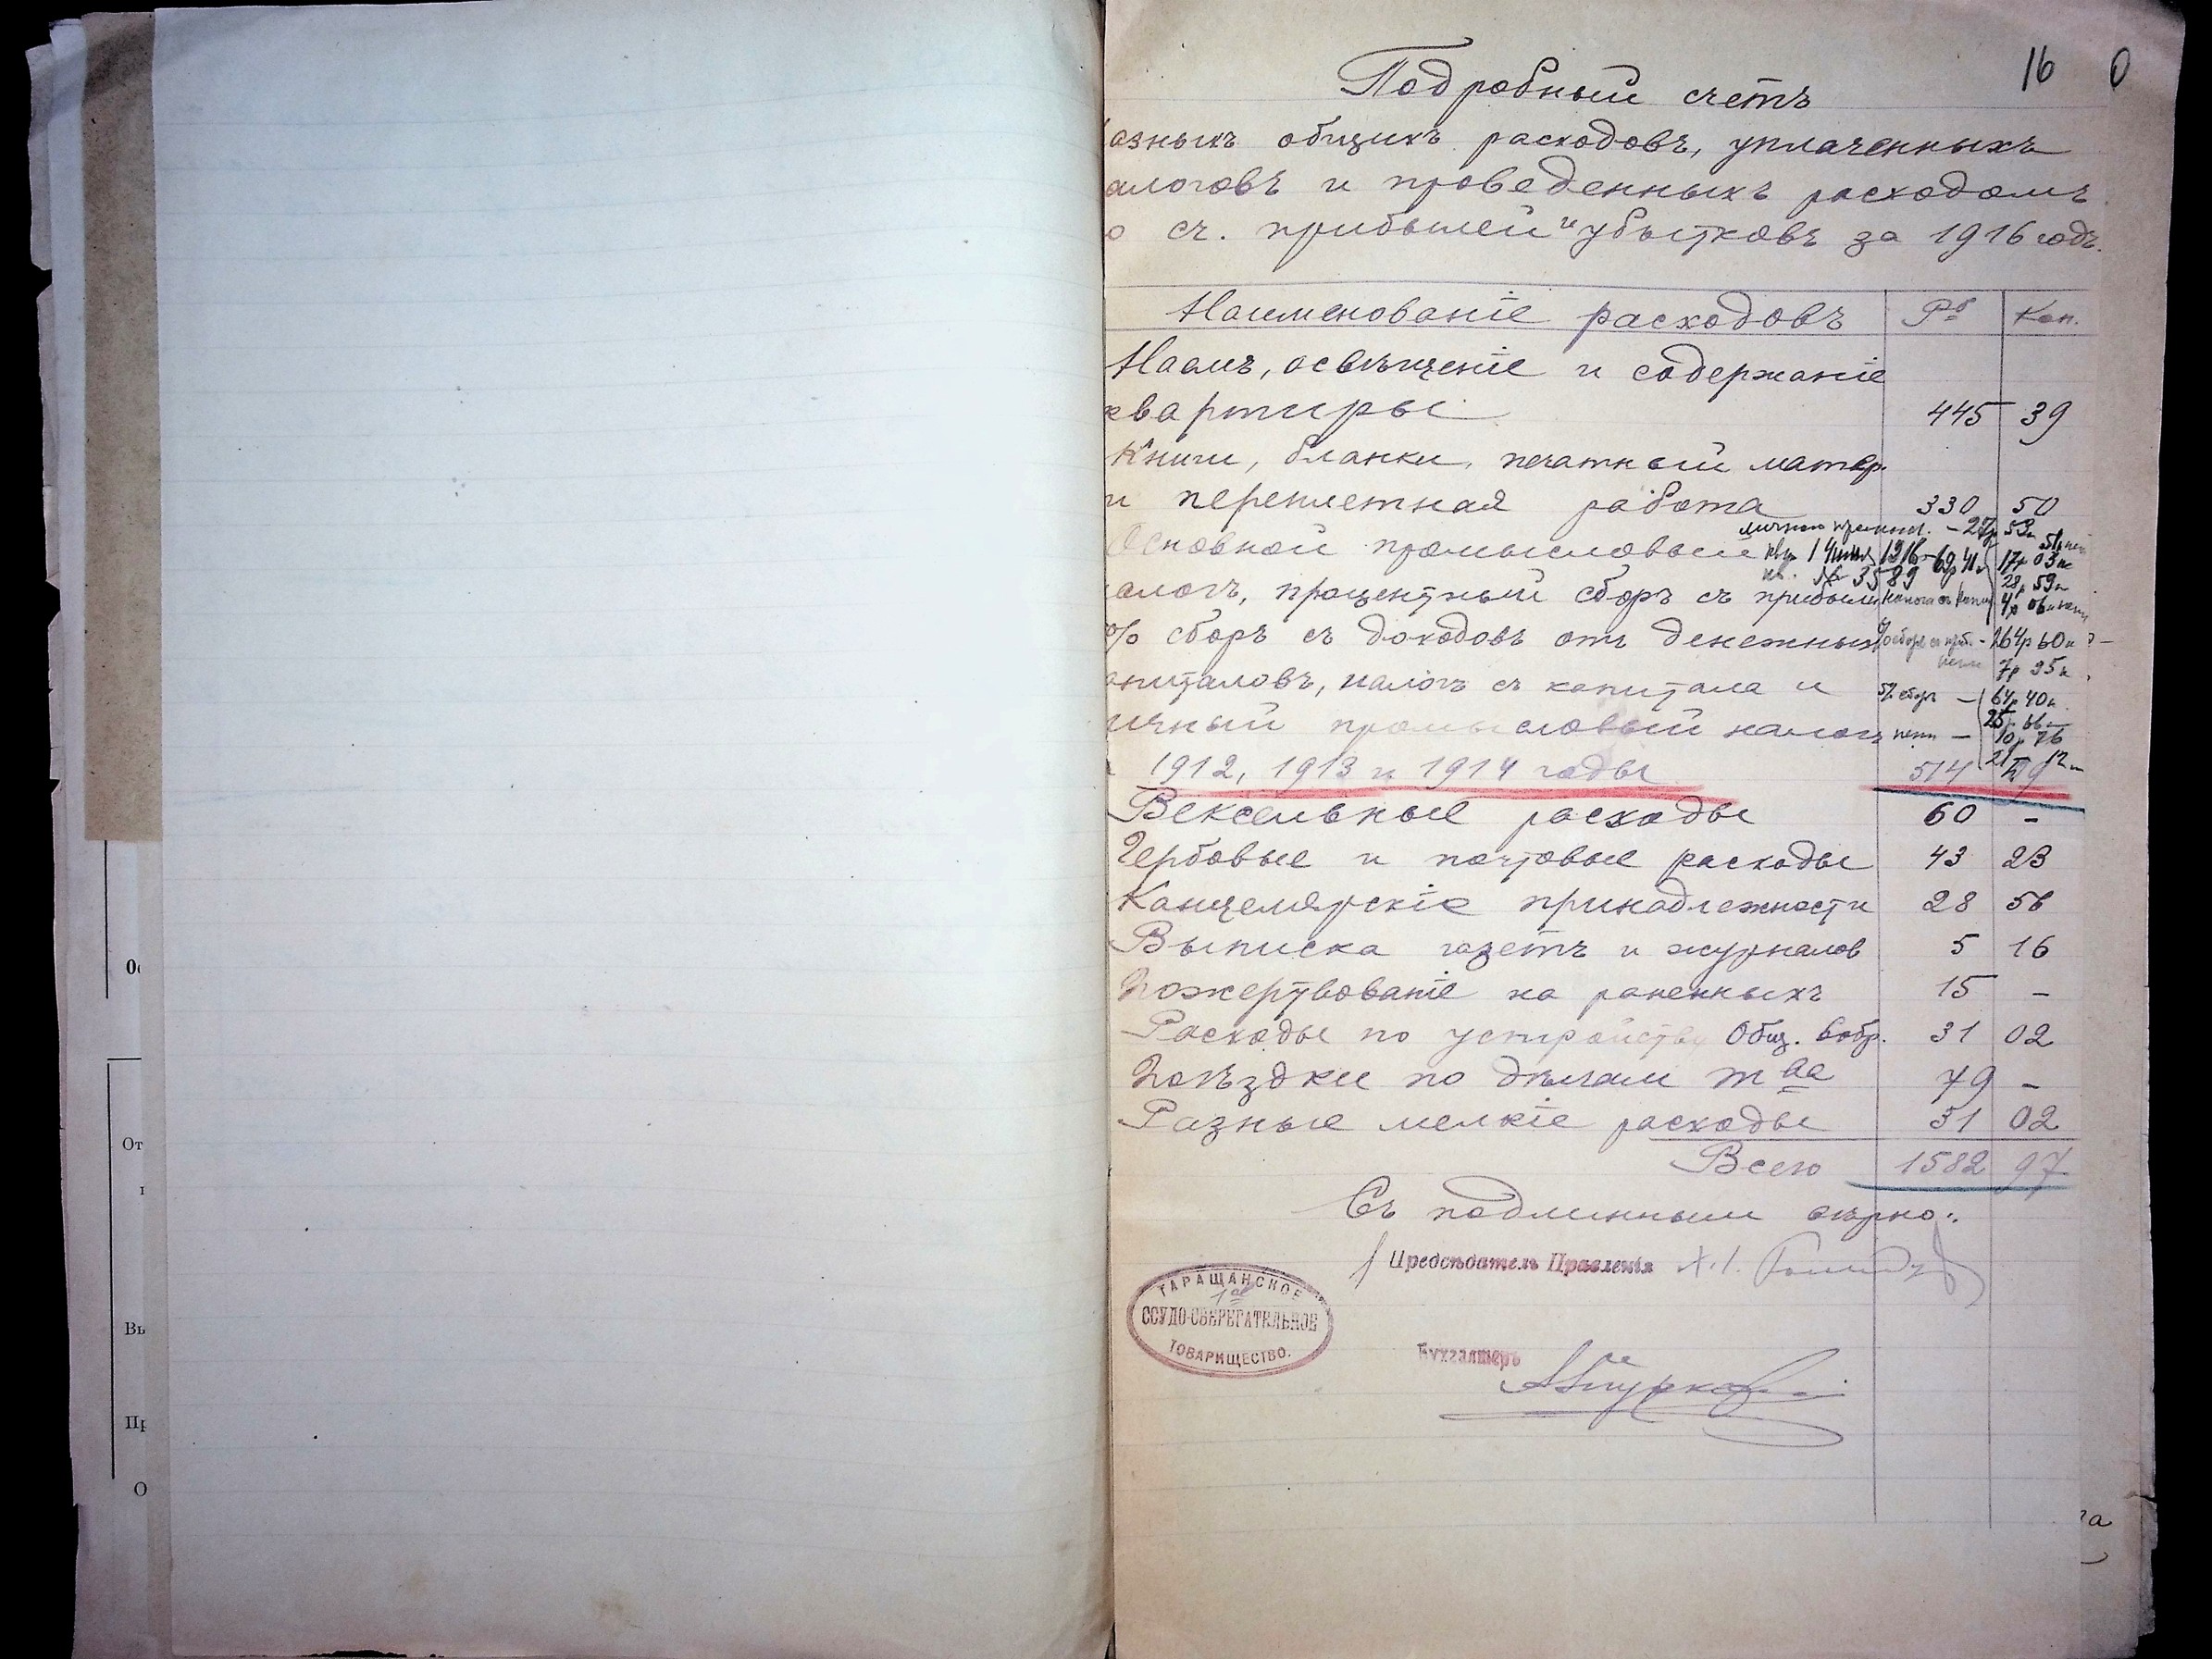 16 0
Подробный счетъ
азныхъ общихъ расходовъ, уплаченныхъ
алоговъ и проведенныхъ расходомъ
о сч. прибылей и убытковъ за 1916 годъ.
Наименованіе расходовъ Рб Коп.
Наемъ, освѣщеніе и содержаніе
квартиры 445 39
Книги, бланки, печатный матер.
и переплетная работа 330 50
Основной промысловый
алогъ, процентный сборъ съ прибыли
% сборъ съ доходовъ отъ денежныхъ 264р 60к
7р 95к
апиталовъ, налогъ съ капитала и 5% сборъ — 64р 40к
ичный промысловый налогъ пени —
1912, 1913 и 1914 годы 514
Вексельные расходы 60 -
Гербовые и почтовые расходы 43 23
Канцелярскія принадлежности 28 56
Выписка газетъ и журналов 5 16
Пожертвованіе на раненныхъ 15 -
Расходы по устройству Общ. Собр. 31 02
Поѣздки по дѣлам т ва 79 -
Разные мелкіе расходы 31 02
Всего 1582 97
Съ подлинным вѣрно:
Предсѣдатель Правленія
ТАРАЩАНСКОЕ
1ое
ССУДО-СБЕРЕГАТЕЛЬНОЕ
ТОВАРИЩЕСТВО.
Бухгалтеръ
От
Вы
Пр
О